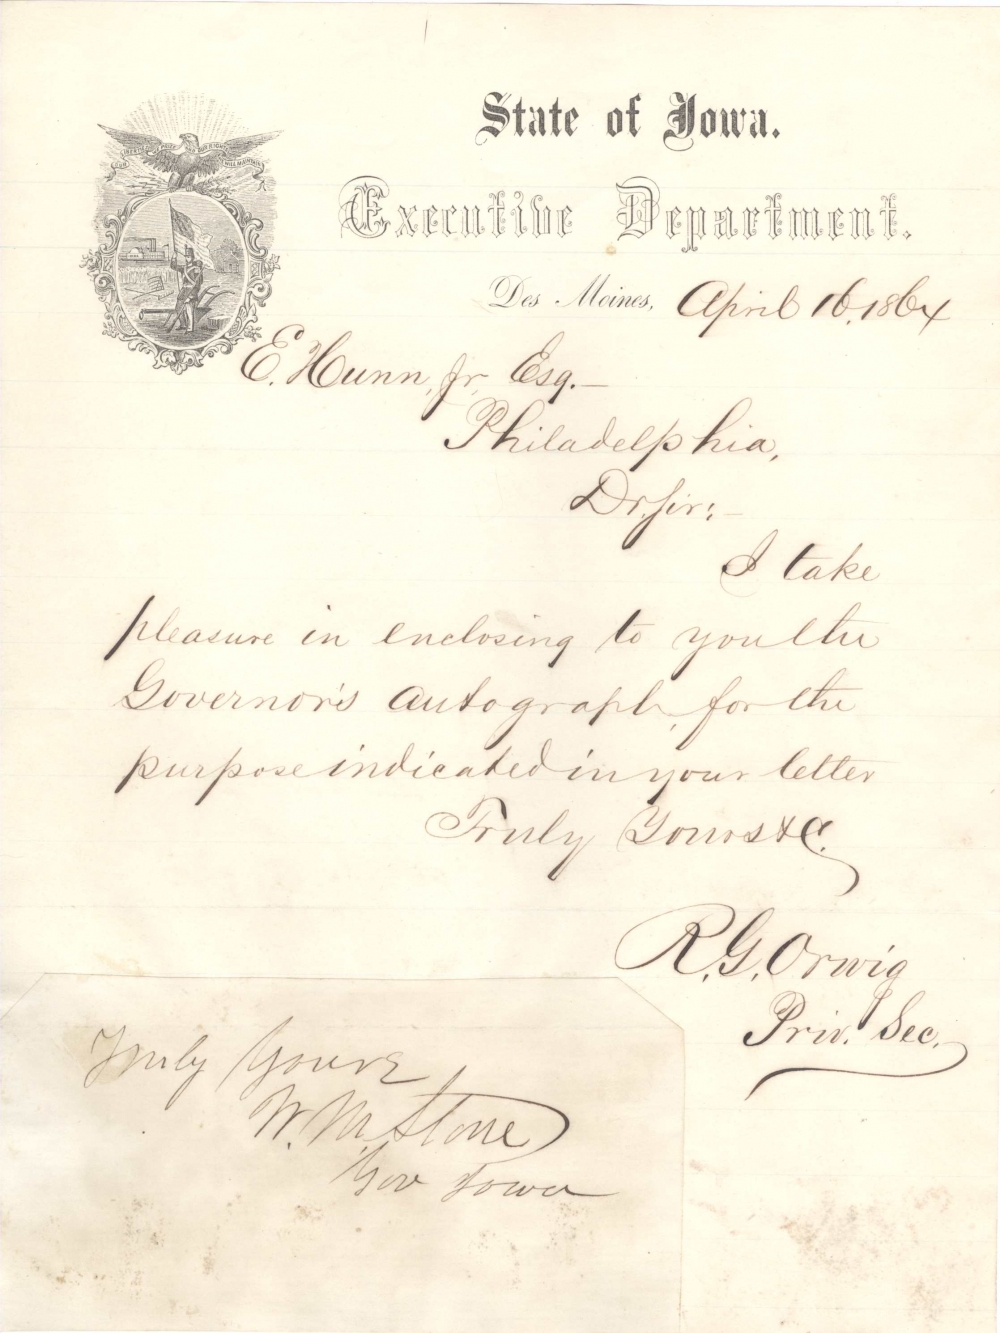 State of Iowa.
Executive Department.
OUR LIBERTIES WE PRIZE AND OUR RIGHTS WE WILL MAINTAIN
Des Moines, April 16, 1864
E. Hunn, Jr, Esq.—
Philadelphia,
Dr. Sir:—
I take
pleasure in enclosing to you the
Governor's autograph, for the
purpose indicated in your letter
Truly Yours &c.
R. G. Orwig
Priv. Sec.
Truly Yours
W. M. Stone
Gov Iowa